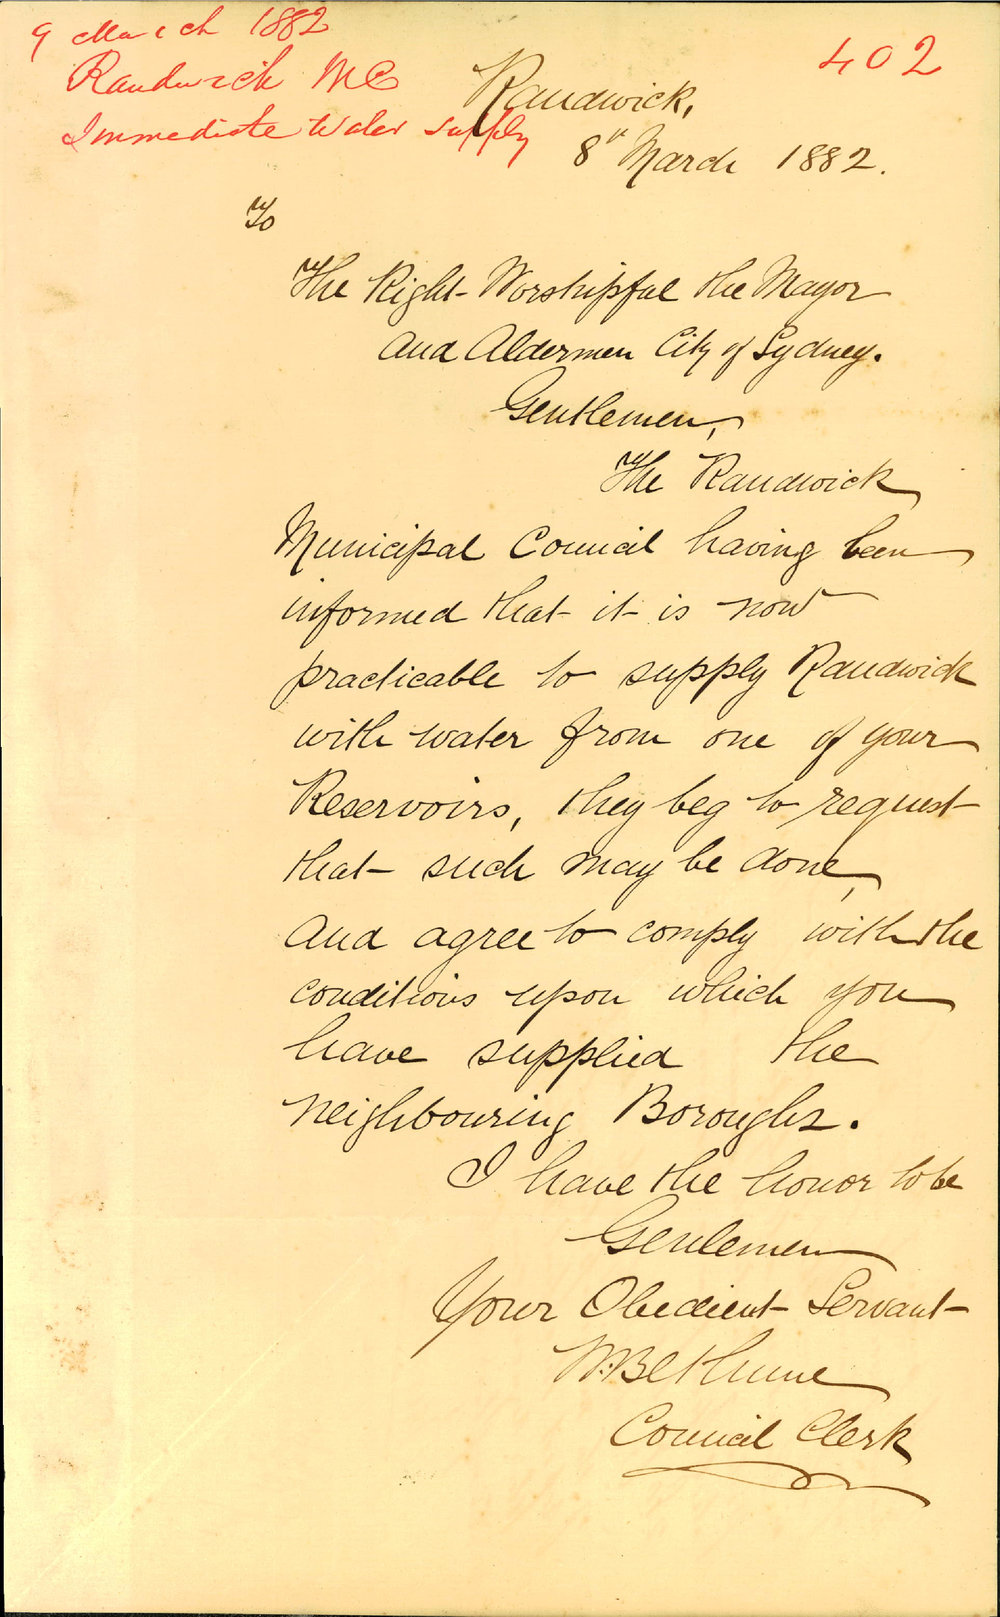 9 March 1882
402
Randwick MC
Immediate Water Supply
Randwick,
8th March 1882.
To
The Right Worshipful the Mayor
and Aldermen City of Sydney.
Gentlemen,
The Randwick
Municipal Council having been
informed that it is now
practicable to supply Randwick
with water from one of your
Reservoirs, they beg to request
that such may be done,
and agree to comply with the
conditions upon which you
have supplied the
neighbouring Boroughs.
I have the honor to be
Gentlemen
Your Obedient Servant
W. Bethune
Council Clerk